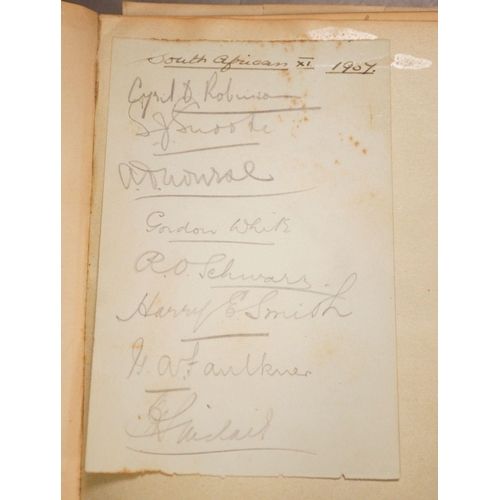 South African XI 1907.
Cyril D Robinson
S. J. Snooke
A. D. Nourse
Gordon White
R. O. Schwarz
Harry E. Smith
G A Faulkner
Sinclair